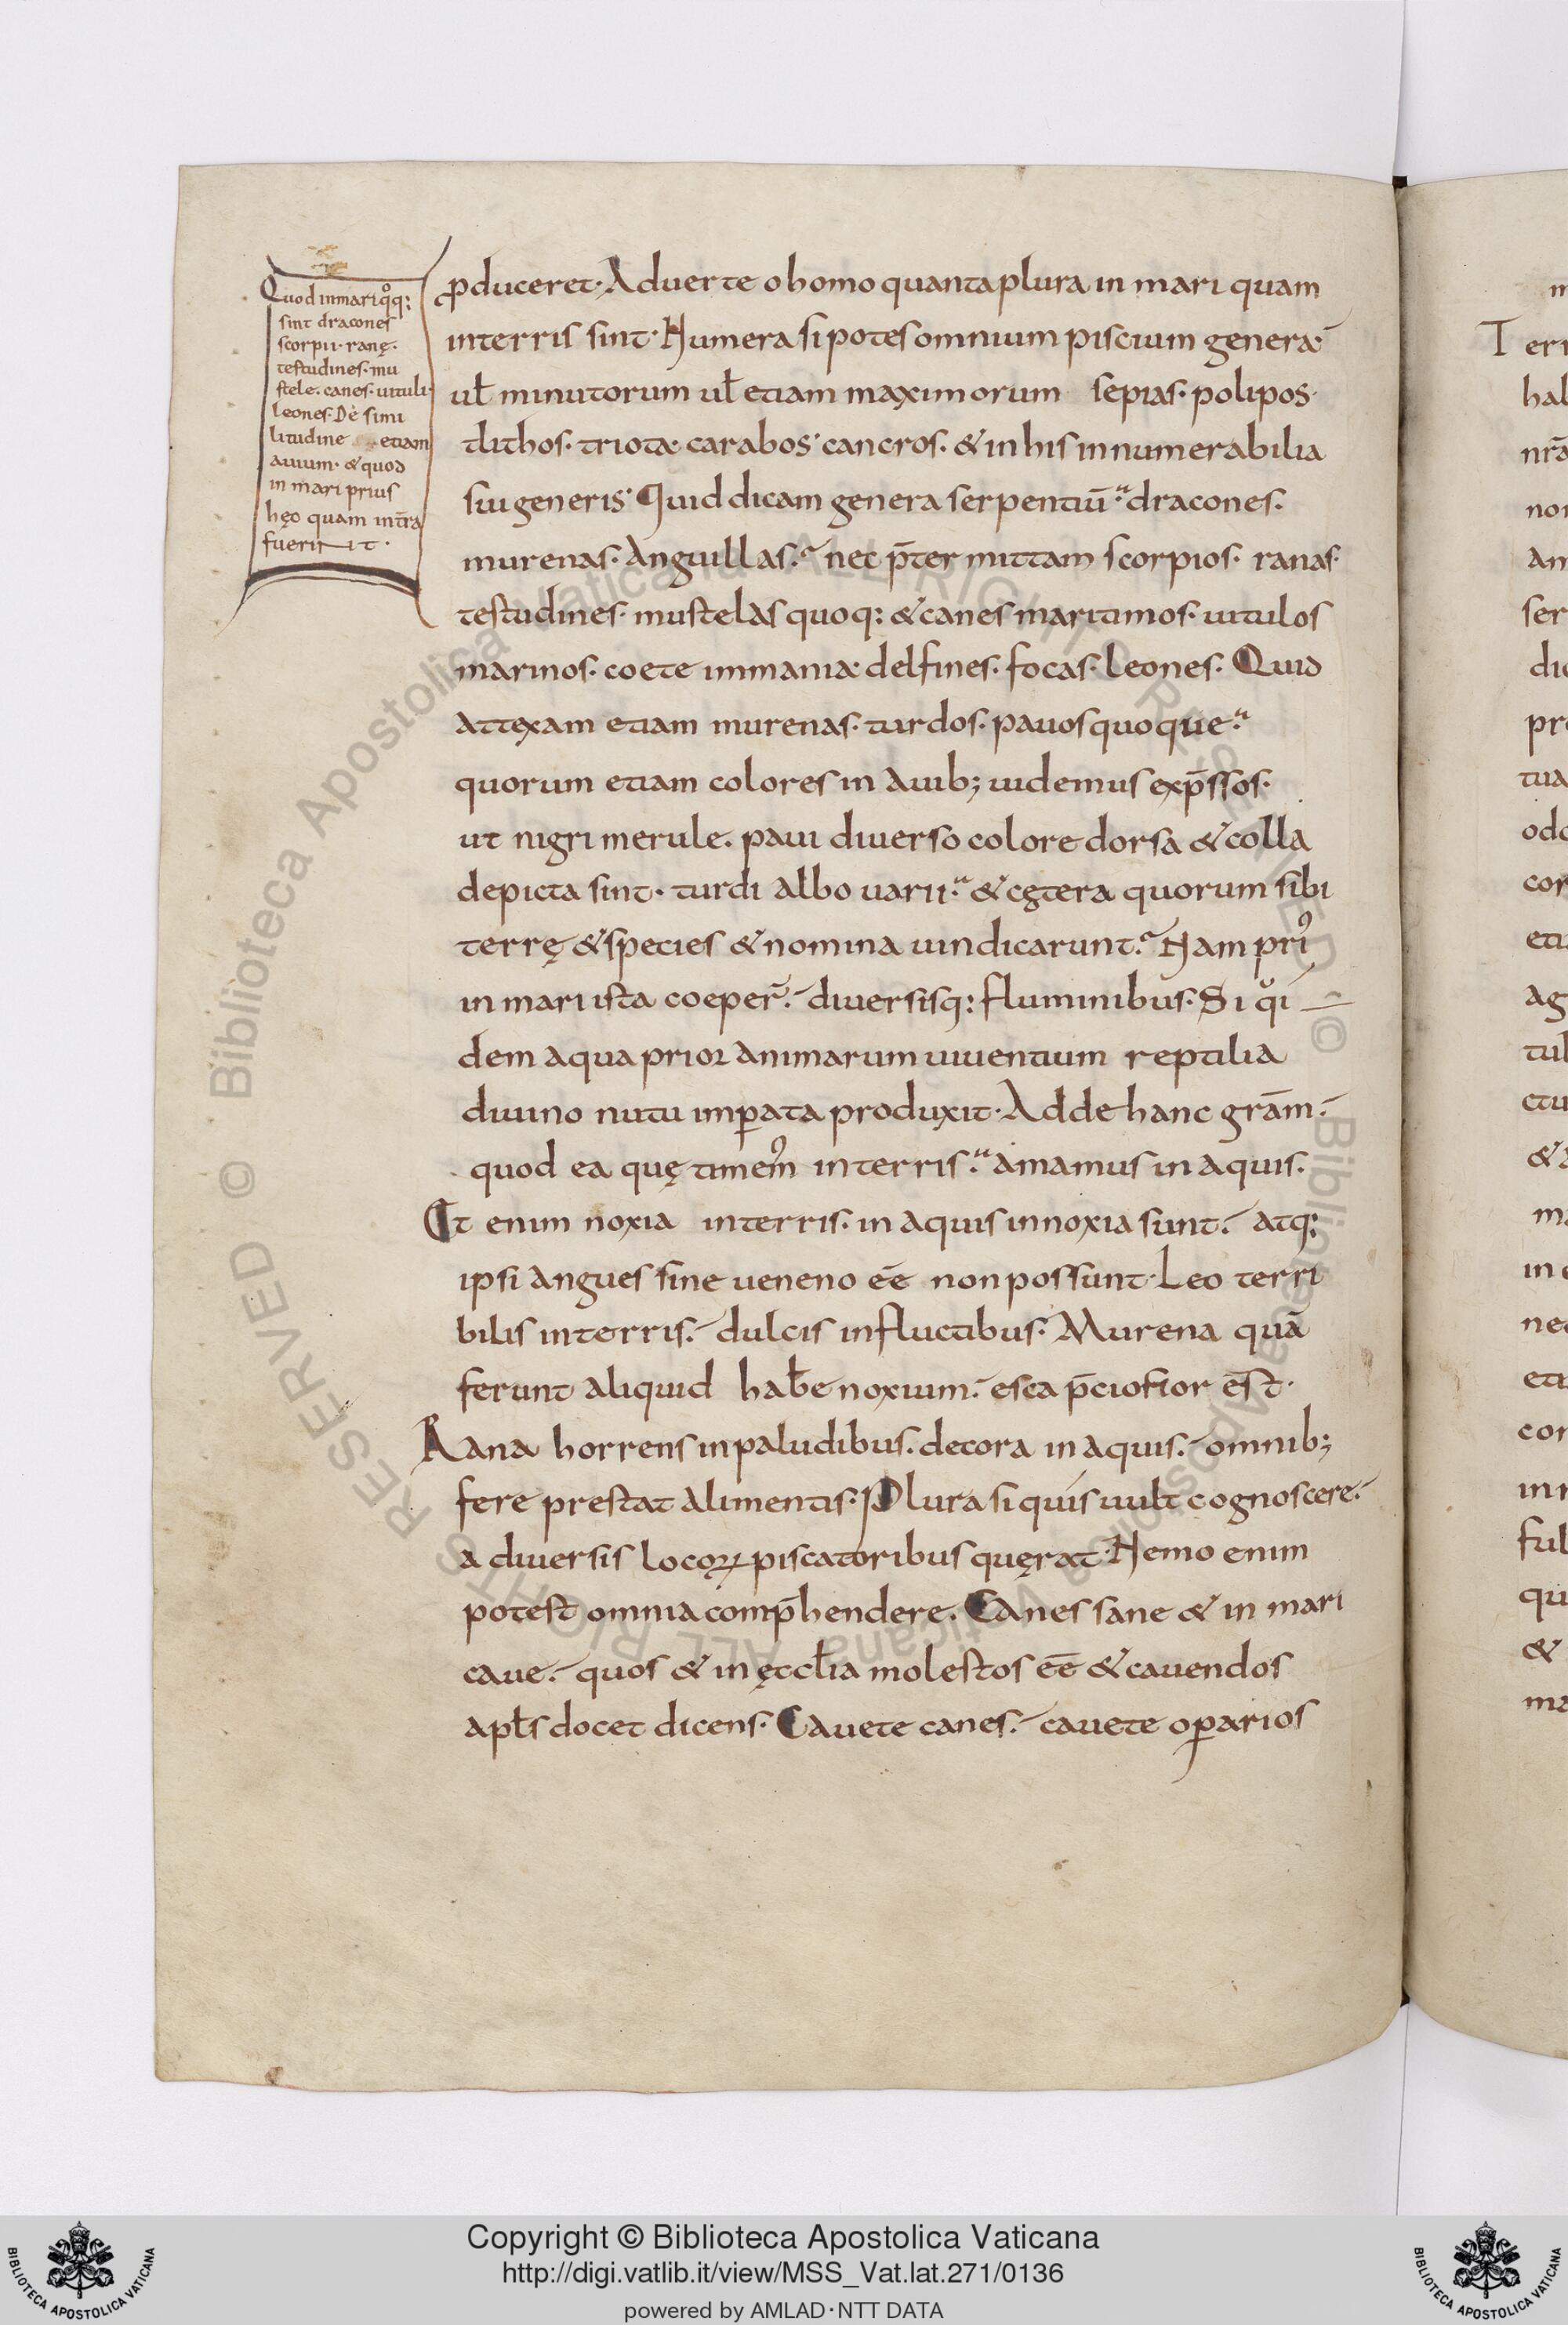 Quod in mari qͦq:
sint dracones
scorpii· ranę·
testudines· mu
stele· canes· uituli·
leones· De simi
litudine etiam
auium· & quod
in mari prius
hęc quam in tr̄a
fuerint·
ꝓduceret· Aduerte o homo quanta plura in mari quam
in terris sint· Numera si potes omnium piscium genera·
ul̄ minutorum ul̄ etiam maximorum sepias· polipos·
tlithos· triota· carabos· cancros· & in his innumerabilia
sui generis· Quid dicam genera serpentiū· dracones·
murenas· Anguillas· nec p̄ter mittam scorpios· ranas·
testudines· mustelas quoq: & canes maritimos· uitulos
marinos· coete immania· delfines· focas· leones· Quid
attexam etiam murenas· turdos· pauos quoque·
quorum etiam colores in auib; uidemus exp̄ssos·
ut nigri merule· paui diuerso colore dorsa & colla
depicta sint· turdi albo uarii· & cętera quorum sibi
terrę & species & nomina uindicarunt· Nam pri᾿
in mari ista coeper̄· diuersisq: fluminibus· Si qͥi
dem aqua prior animarum uiuentium reptilia
diuino nutu imꝑata produxit· Adde hanc grām·
quod ea quę timem᾿ in terris· amamus in aquis·
Et enim noxia in terris· in aquis innoxia sunt· atq:
ipsi angues sine ueneno eē non possunt· Leo terri
bilis in terris· dulcis in fluctibus· Murena quā
ferunt aliquid hab̄e noxium· esca p̄ciosior est·
Rana horrens in paludibus· decora in aquis· omnib;
fere prestat alimentis· Plura si quis uult cognoscere·
a diuersis locoꝝ piscatoribus quęrat· Nemo enim
potest omnia comp̄hendere· Canes sane & in mari
caue· quos & in ęccl̄ia molestos eē & cauendos
apl̄s docet dicens· Cauete canes· cauete oꝑarios
T
Copyright © Biblioteca Apostolica Vaticana
http://digi.vatlib.it/view/MSS_Vat.lat.271/0136
powered by AMLAD·NTT DATA
BIBLIOTECA APOSTOLICA VATICANA
BIBLIOTECA APOSTOLICA VATICANA
© Biblioteca Apostolica Vaticana ALL RIGHTS RESERVED © Biblioteca Apostolica Vaticana ALL RIGHTS RESERVED